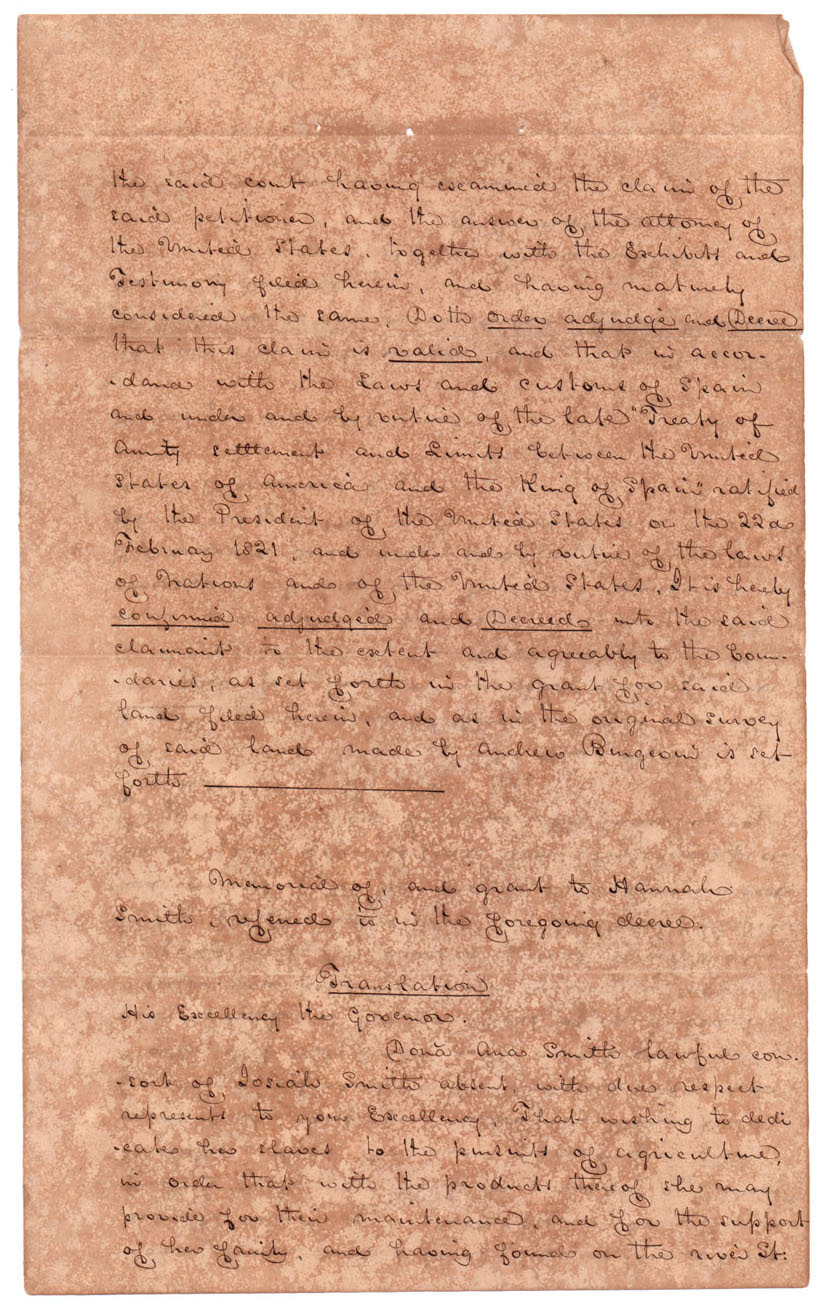 the said court having examined the claim of the
said petitioner, and the answer of the attorney of
the United States, together with the Exhibits and
Testimony filed herein, and having maturely
considered the same, Doth order adjudge and Decree
that this claim is valid, and that in accor-
-dance with the Laws and customs of Spain
and under and by virtue of the late "Treaty of
Amity settlement and Limits between the United
States of America and the King of Spain" ratified
by the President of the United States on the 22d
February 1821, and under and by virtue of the laws
of Nations and of the United States, It is hereby
confirmed adjudged and Decreed unto the said
claimant to the extent and agreeably to the boun-
-daries, as set forth in the grant for said
land filed herein, and as in the original survey
of said land made by Andrew Burgevin is set
forth
Memorial of, and grant to Hannah
Smith, referred to in the foregoing decree.
Translation
His Excellency the Governor.
Doña Ana Smith lawful con-
-sort of Josiah Smith absent, with due respect
represents to your Excellency, That wishing to dedi
-cate her slaves to the pursuits of agriculture,
in order that with the products thereof she may
provide for their maintenance, and for the support
of her family, and having found on the river St: